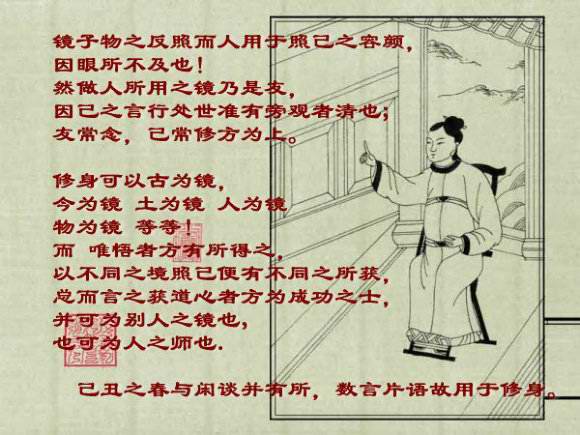 镜子物之反照而人用于照己之容颜，
因眼所不及也！
然做人所用之镜乃是友，
因己之言行处世准有旁观者清也；
友常念，己常修方为上。
修身可以古为镜，
今为镜 土为镜 人为镜
物为镜 等等！
而 唯悟者方有所得之，
以不同之境照己便有不同之所获，
总而言之获道心者方为成功之士，
并可为别人之镜也，
也可为人之师也.
己丑之春与闲谈并有所，数言片语故用于修身。